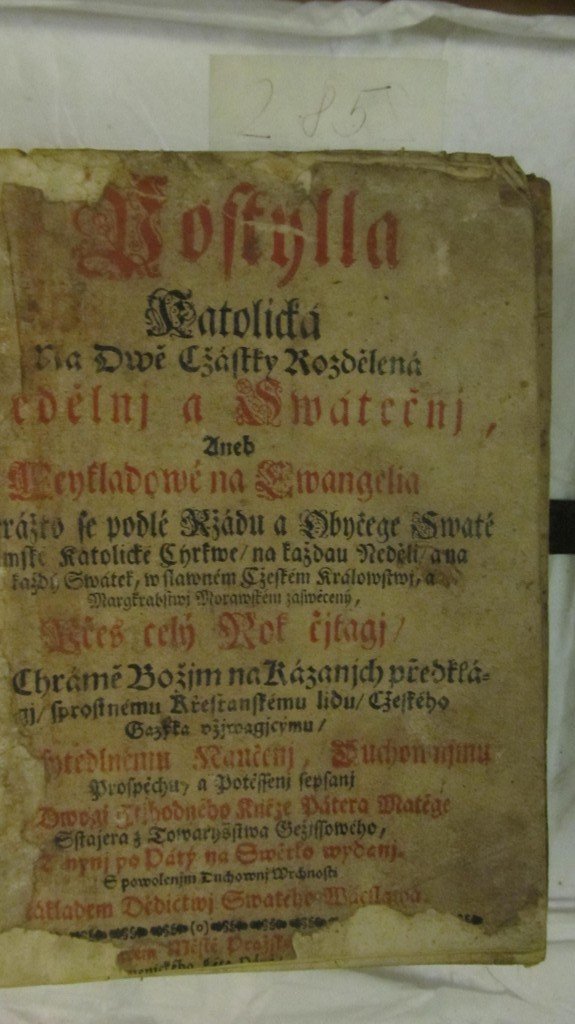 285
Postylla
Katolická
Na Dwě Cžástky Rozdělená
edělnj a Swátečnj,
Aneb
Weykladowé na Ewangelia
rážto se podlé Ržádu a Obyčege Swaté
mské Katolické Cýrkwe/ na každau Neděli/ a na
každý Swátek, w slawném Cžeském Králowstwj, a
Margkrabstwj Morawském zaswěcený,
Přes celý Rok čjtagj/
Chrámě Božjm na Kázanjch předklá-
gj/ sprostnému Křestanskému lidu/ Cžeského
Gazyka vžjwagjcýmu/
Naučenj, Duchownjmu
Prospěchu, a Potěssenj sepsanj
Dwogj Cžtihodného Kněze Pátera Matěge
Sstajera z Towaryšstwa Gežjssowého,
nynj po Páty na Swětlo wydanj.
S powolenjm Duchownj Wrchnosti
ákladem Dědictwj Swatého Wácslawa.
(o)
Městě Pražském